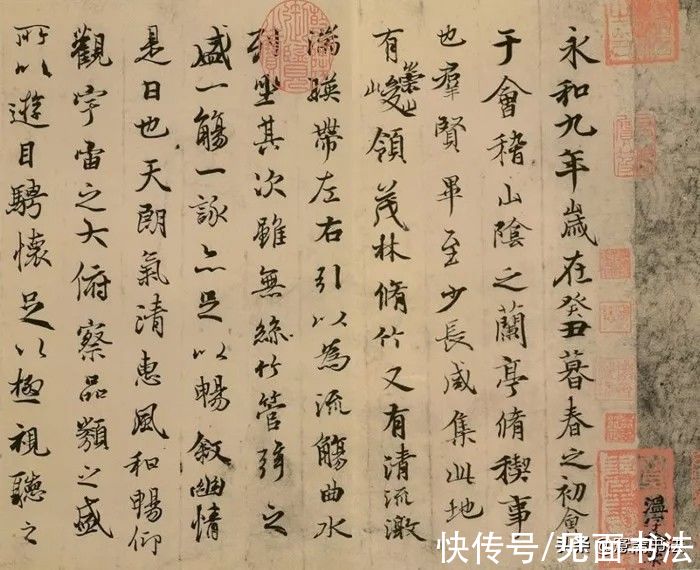 永和九年歲在癸丑暮春之初會
于會稽山陰之蘭亭脩稧事
也羣賢畢至少長咸集此地
有崇山峻領茂林脩竹又有清流激
湍暎帶左右引以為流觴曲水
列坐其次雖無絲竹管弦之
盛一觴一詠亦足以暢敘幽情
是日也天朗氣清惠風和暢仰
觀宇宙之大俯察品類之盛
所以遊目騁懷足以極視聽之
快传号/见面书法